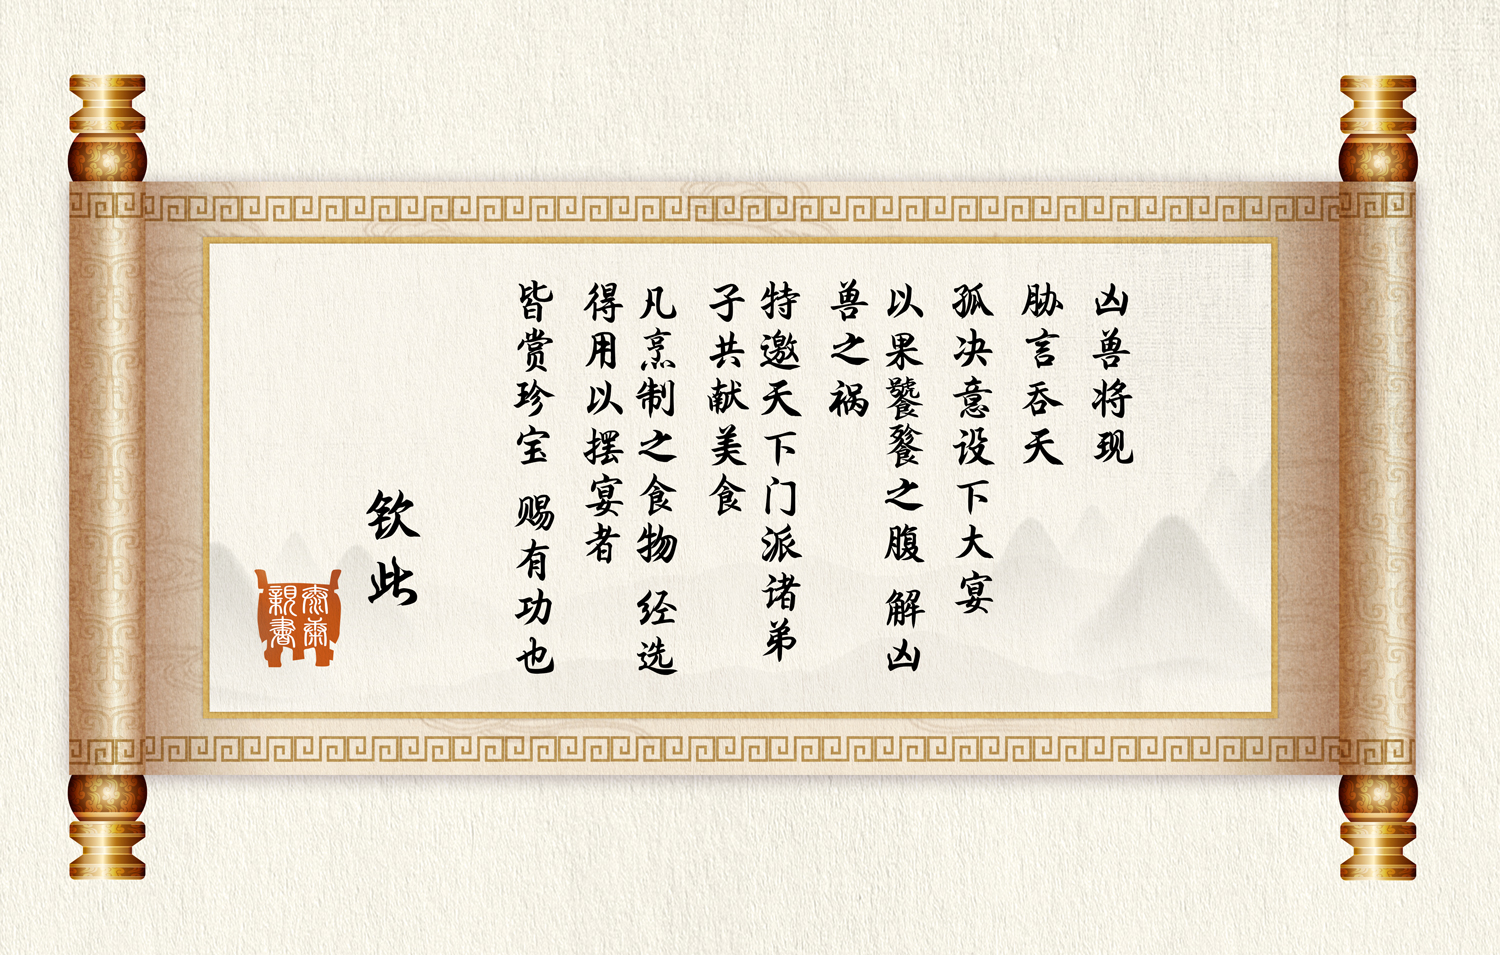 凶兽将现
胁言吞天
孤决意设下大宴
以果饕餮之腹 解凶
兽之祸
特邀天下门派诸弟
子共献美食
凡烹制之食物 经选
得用以摆宴者
皆赏珍宝 赐有功也
钦此